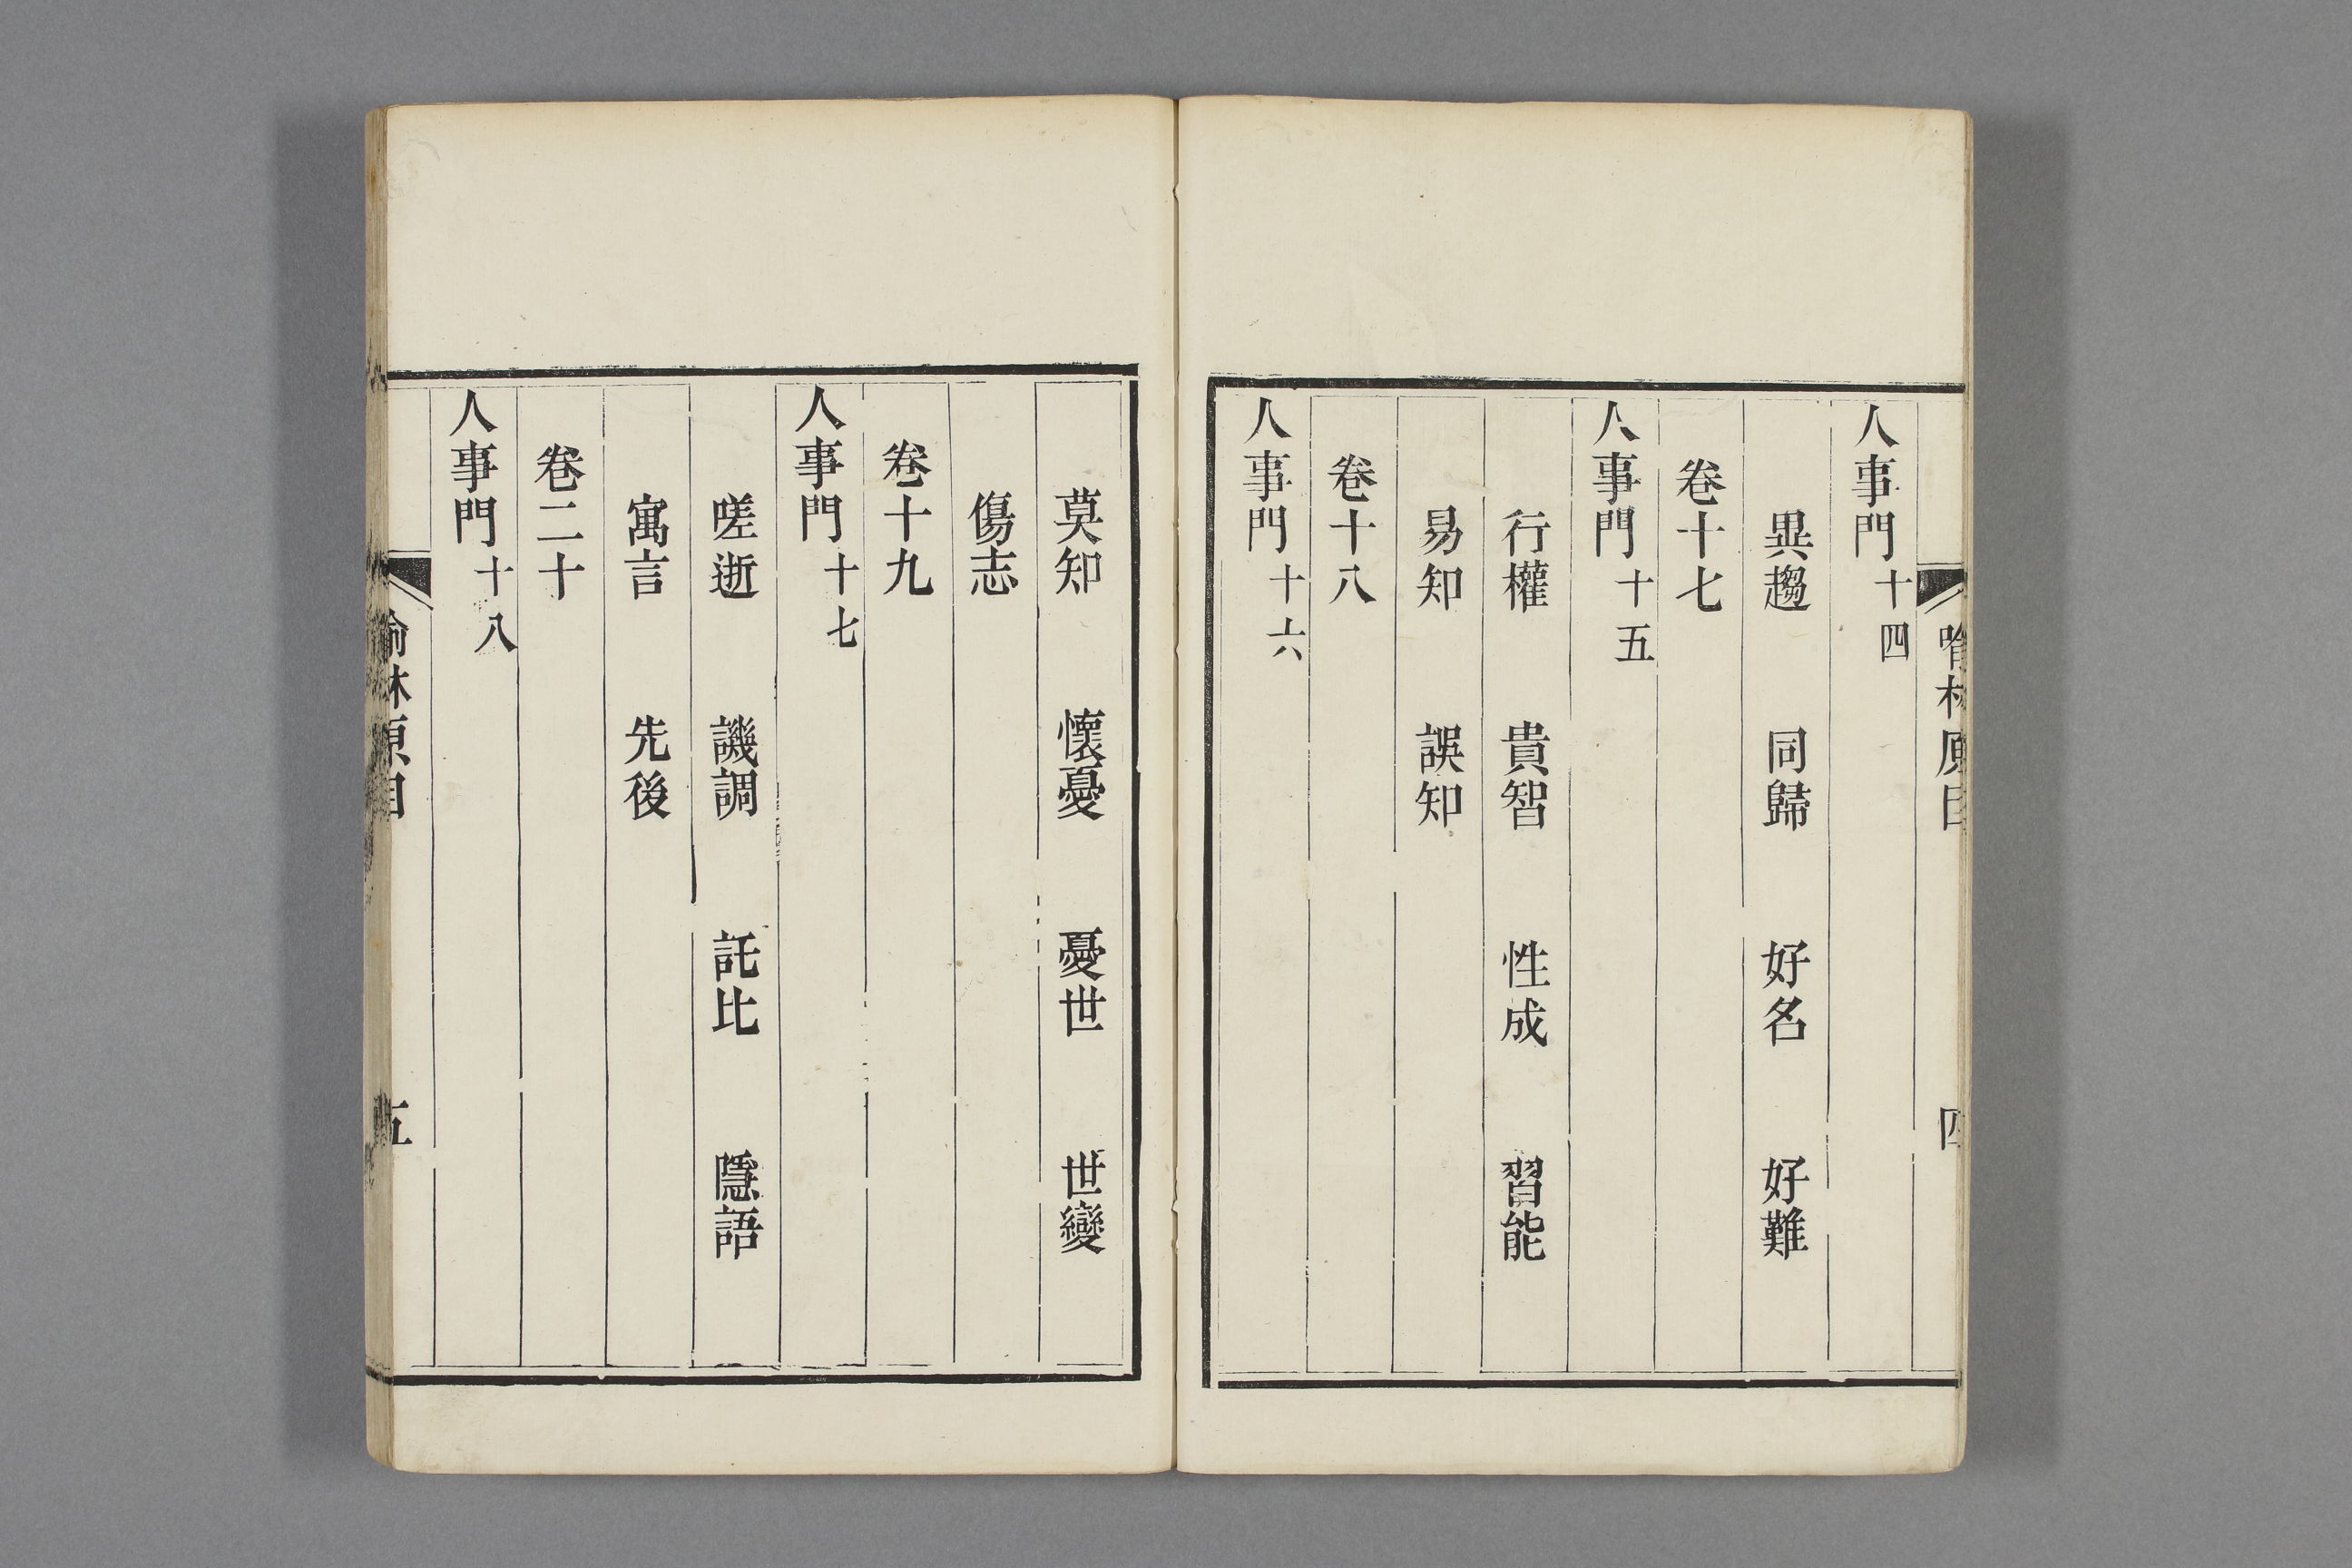 喻林原目
四
人事門十四
異趨 同歸 好名 好難
卷十七
人事門十五
行權 貴智 性成 習能
易知 誤知
卷十八
人事門十六
莫知 懷憂 憂世 世變
傷志
卷十九
人事門十七
嗟逝 譏調 託比 隱語
寓言 先後
卷二十
人事門十八
喻林原目
五